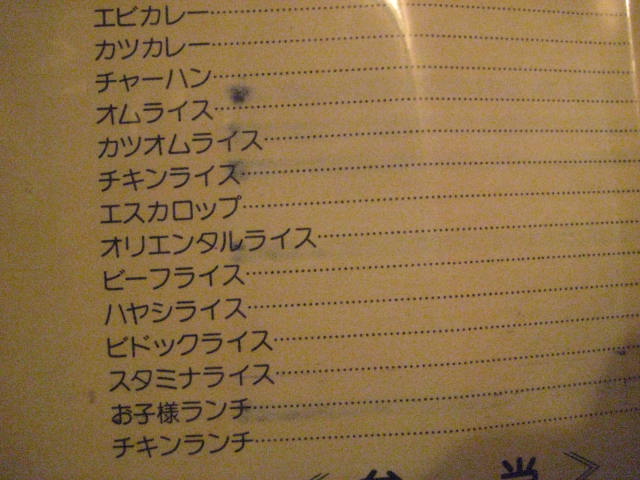 エビカレー
カツカレー
チャーハン
オムライス
カツオムライス
チキンライス
エスカロップ
オリエンタルライス
ビーフライス
ハヤシライス
ビドックライス
スタミナライス
お子様ランチ
チキンランチ